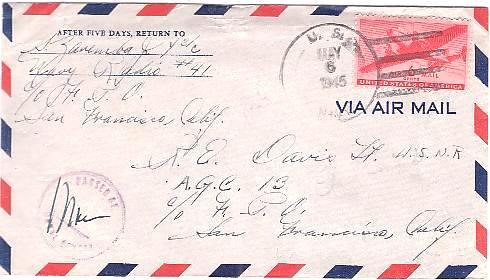 AFTER FIVE DAYS, RETURN TO
S. Y3/c
Navy #41
c/o F. P. O.
San Francisco, Calif.
U.S.
MAY
6
1945
MAIL
UNITED STATES OF AMERICA
VIA AIR MAIL
R. E. Davis Lt. U.S.N.R
A.G.C. 13
c/o F. P. O.
San Francisco, Calif.
PASSED BY